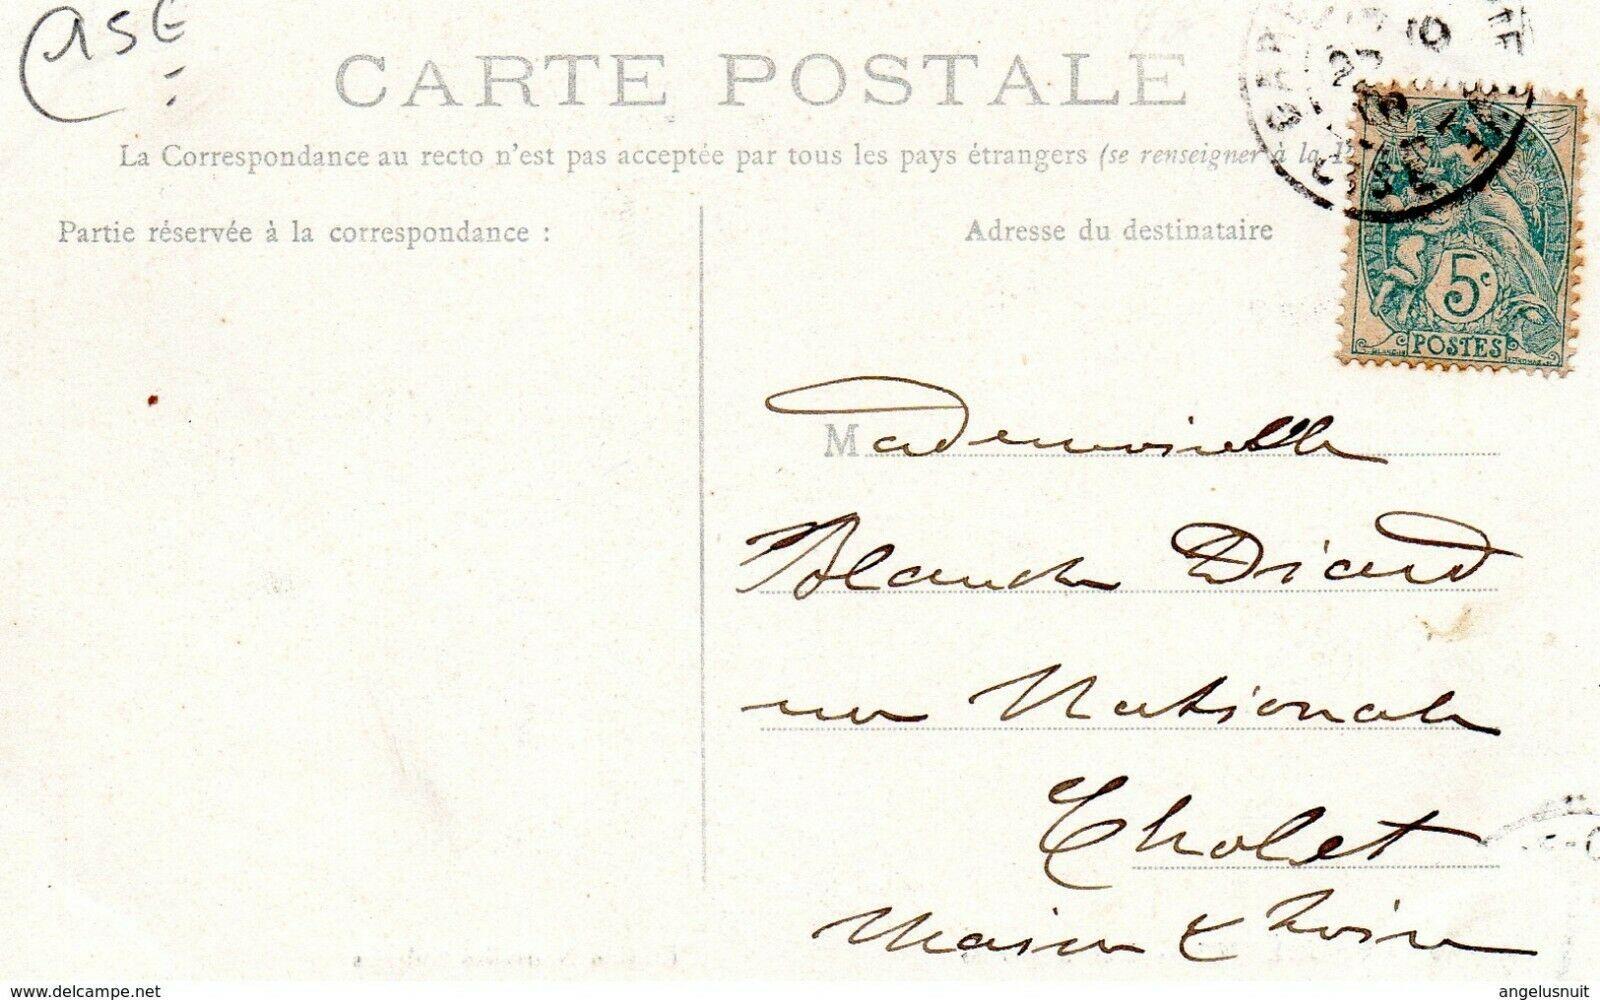 CARTE POSTALE
La Correspondance au recto n'est pas acceptée par tous les pays étrangers (se renseigner à la
Partie réservée à la correspondance :
Adresse du destinataire
5c
POSTES
Mademoiselle
Blanche Dicard
rue Nationale
Cholet
Maine & Loire
www.delcampe.net
angelusnuit